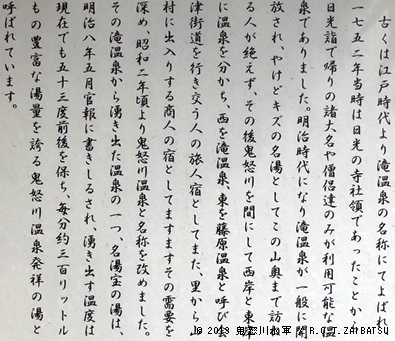 古くは江戸時代より滝温泉の名称にてよばれ
一七五二年当時は日光の寺社領であったことから
日光詣で帰りの諸大名や僧侶達のみが利用可能な温
泉でありました。明治時代になり滝温泉が一般に開
放され、やけどキズの名湯としてこの山奥まで訪れ
る人が絶えず、その後鬼怒川を間にして西岸と東岸
に温泉を分かち、西を滝温泉、東を藤原温泉と呼び会
津街道を行き交う人の旅人宿としてまた、里から山
村に出入りする商人の宿としてますますその需要を
深め、昭和二年頃より鬼怒川温泉と名称を改めました。
その滝温泉から湧き出た温泉の一つ、名湯宝の湯は、
明治八年五月官報に書きしるされ、湧き出す温度は
現在でも五十三度前後を保ち、毎分約三百リットル
もの豊富な湯量を誇る鬼怒川温泉発祥の湯と
呼ばれています。
© 2013 鬼怒川松軍 R.O.T.ZAIBATSU